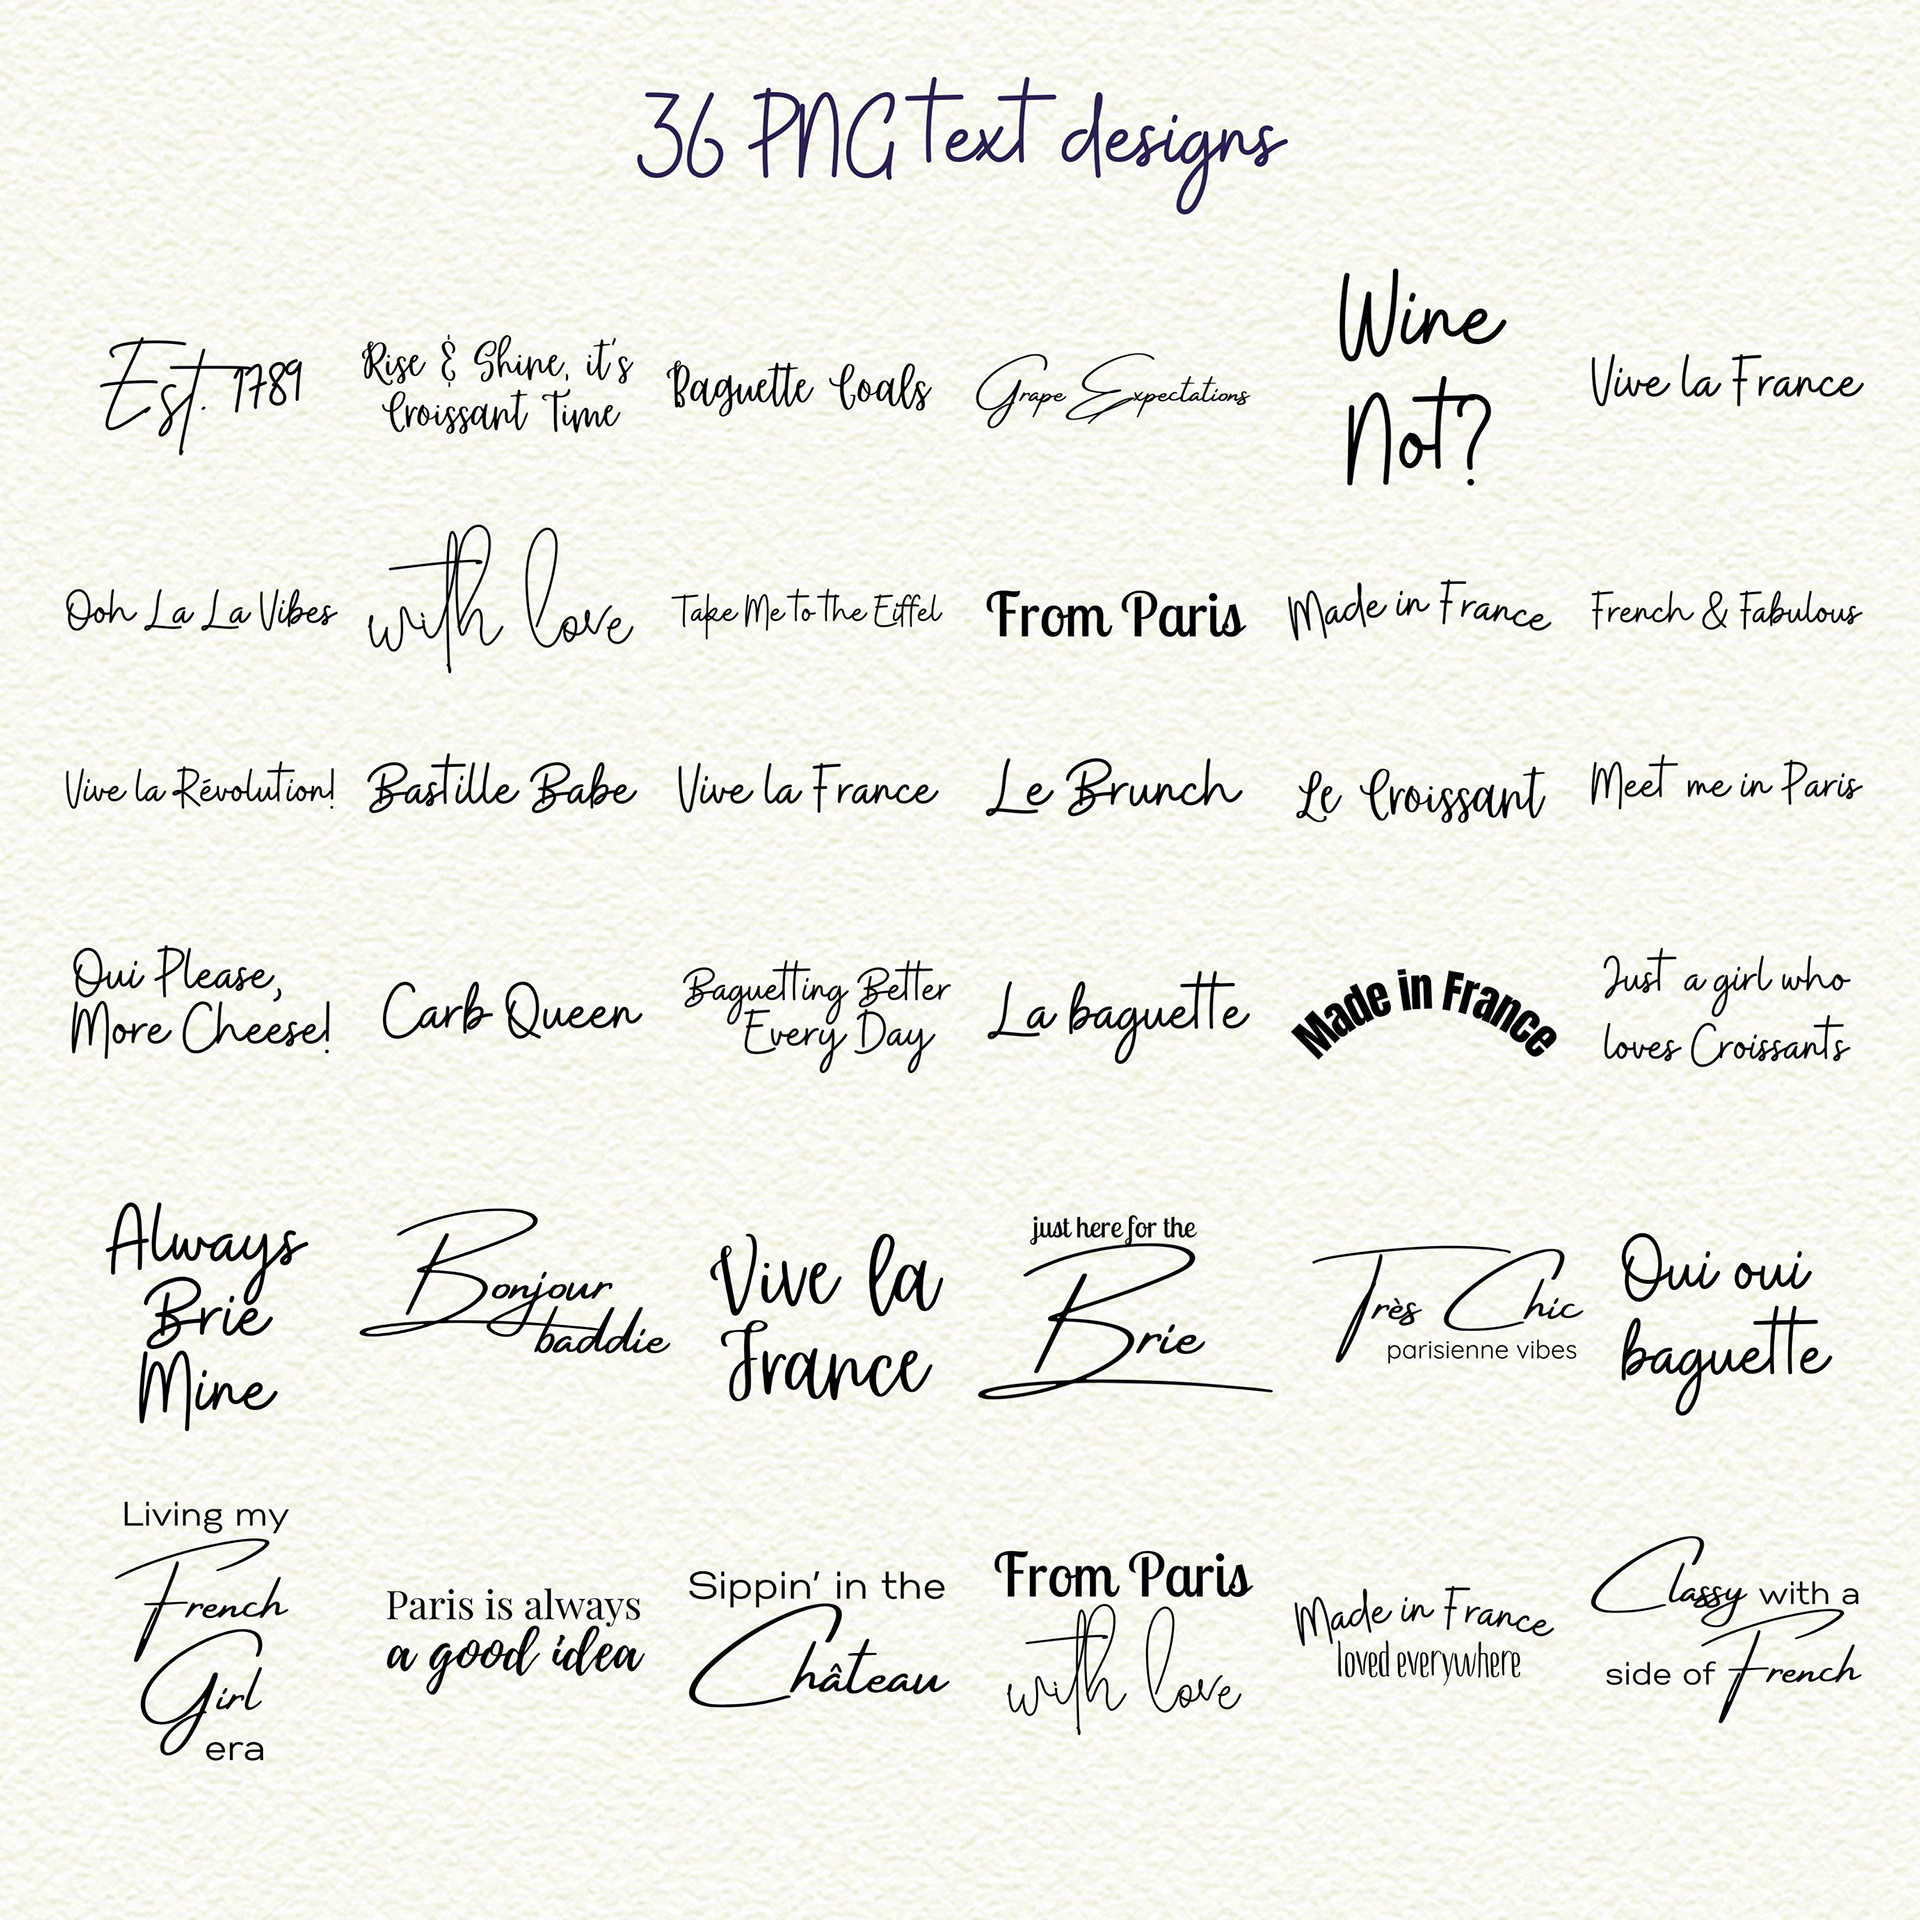 36 PNG text designs
Est. 1789
Rise & Shine, it's
Croissant Time
Baguette Goals
Grape Expectations
Wine
Not?
Vive la France
Ooh La La Vibes
with love
Take Me to the Eiffel
From Paris
Made in France
French & Fabulous
Vive la Révolution!
Bastille Babe
Vive la France
Le Brunch
Le Croissant
Meet me in Paris
Oui Please,
More Cheese!
Carb Queen
Baguetting Better
Every Day
La baguette
Made in France
Just a girl who
loves Croissants
Always
Brie
Mine
Bonjour
baddie
Vive la
France
just here for the
Brie
Très Chic
parisienne vibes
Oui oui
baguette
Living my
French
Girl
era
Paris is always
a good idea
Sippin' in the
Château
From Paris
with love
Made in France
loved everywhere
Classy with a
side of French